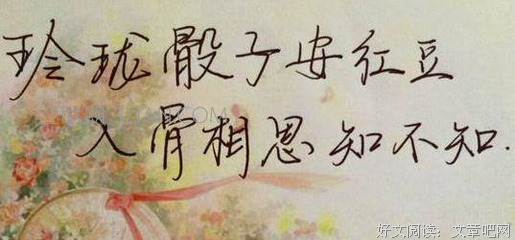 玲珑骰子安红豆
入骨相思知不知.
好文阅读：文章吧网